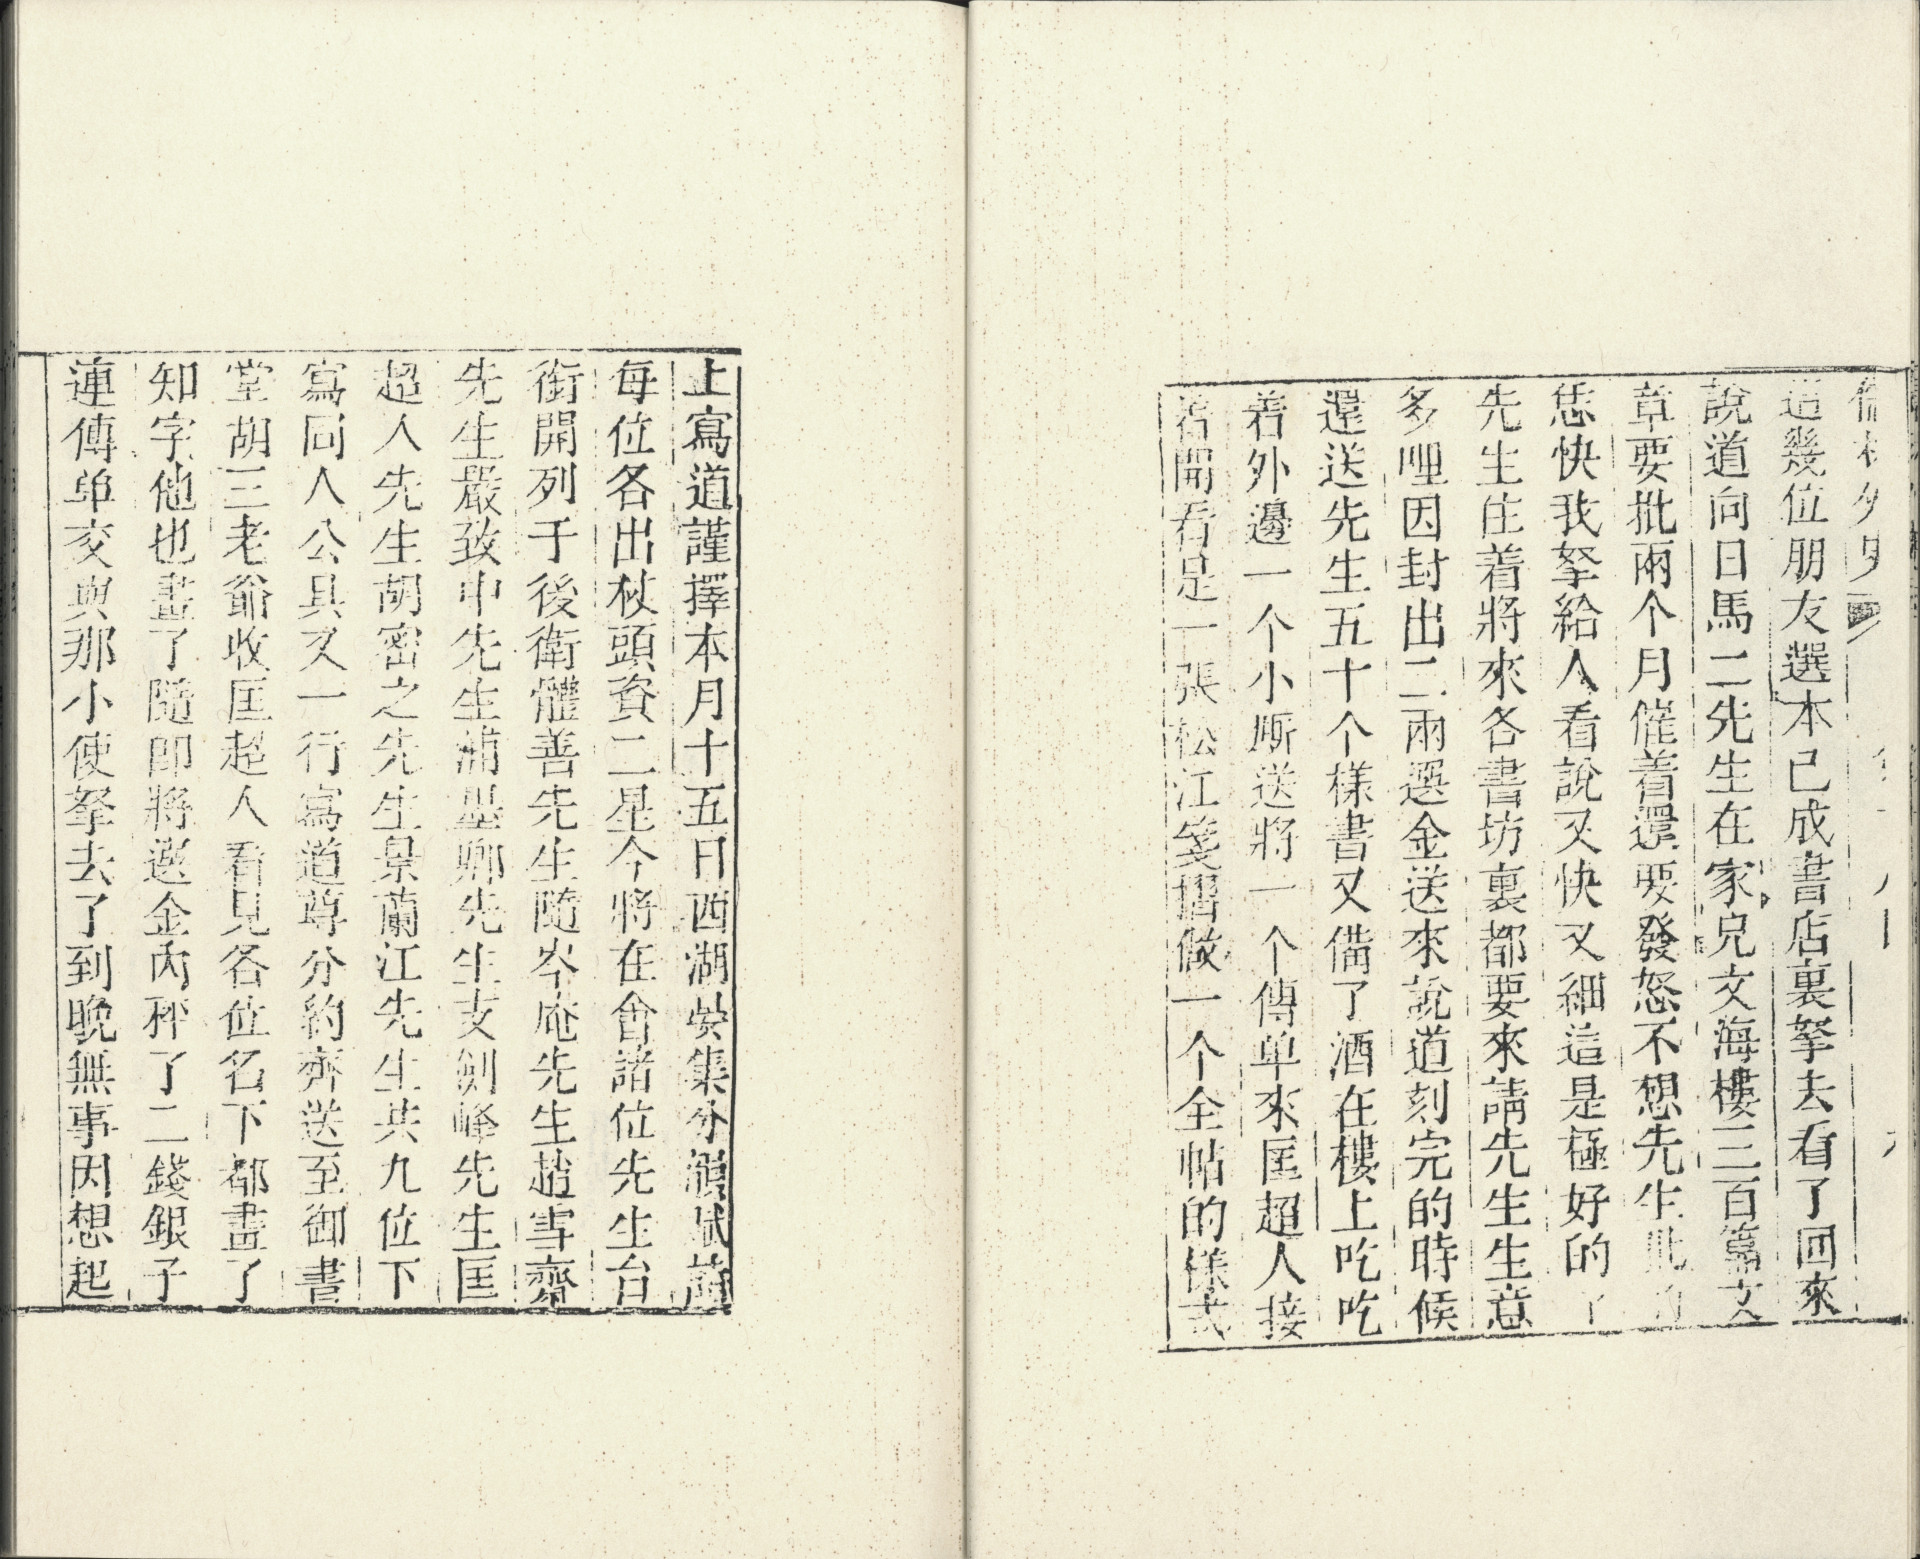 道幾位朋友選本已成書店裏拏去看了回來
說道向日馬二先生在家兄文海樓三百篇文
章要批兩个月催着還要發怒不想先生批
恁快我拏給人看說又快又細這是極好的了
先生庄着將來各書坊裏都要來請先生生意
多哩因封出二兩選金送來說道刻完的時候
還送先生五十个樣書又備了酒在樓上吃吃
着外邊一个小厮送將一个傳单來匡超人接
着開看是一張松江箋摺做一个全帖的樣式
上寫道謹擇本月十五日西湖宴集分韻賦詩
每位各出杖頭資二星今將在會諸位先生台
銜開列于後衛體善先生隨岑庵先生趙雪齋
先生嚴致中先生浦墨卿先生支劍峰先生匡
超人先生胡密之先生景蘭江先生共九位下
寫同人公具又一行寫道尊分約齊送至御書
堂胡三老爺收匡超人看見各位名下都畫了
知字他也畫了隨卽將選金內秤了二錢銀子
連傳单交與那小使拏去了到晚無事因想起